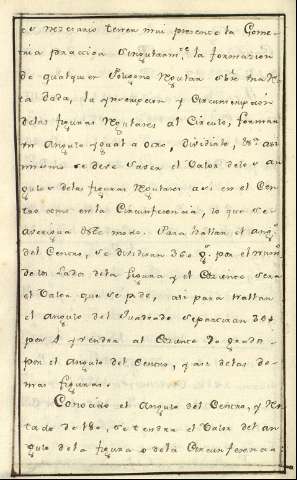 es nezesario tener mui presente la Gome-
tria practica Singularmte la formazion
de qualquier Poligono Regular sobre una Rec-
ta dada, la ynscripcion y Circunscripcion
delas figuras Regulares al Circulo, formar
un Angulo ygual a otro, dividirlo,
mismo se deve saver el Valor delos an
gulos delas figuras Regulares asi en el Cen
tro como en la Circunferencia, lo que se
averigua deste modo. Para hallar el ang
del Centro, se dividiran 360 gs por el num
de los Lados dela figura y el Cociente sera
el Valor que se pide, asi para hallar
el angulo del Quadrado se partiran 360
por 4 y vendra al Cociente 90 grads
por el Angulo del Centro, y asi delas de-
mas figuras.
Conocido el Angulo del Centro, y Res
tado de 180, se tendra el Valor del an-
gulo dela figura o dela Circunferencia